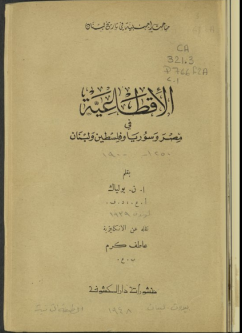 CA
321.3
P766fA
c.1
الإقطاعية
في
مصر وسوريا وفلسطين ولبنان
١٢٥٠ - ١٩٠٠
بقلم
ا. ن. بولياك
نقله عن الانكليزية
عاطف كرم
ب. ع.
منشورات دار المكشوف
١٩٤٨